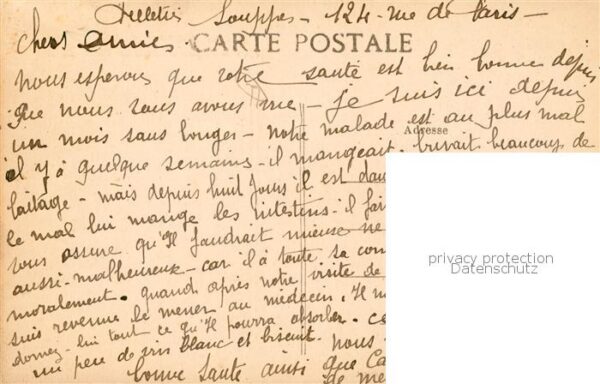 Souppes - 124 - rue de Paris -
chers amies
CARTE POSTALE
nous esperons que votre santé est bien bonne depuis
que nous vous avons vue - je suis ici depuis
un mois sans bouger - notre malade est au plus mal
Adresse
il y à quelque semaines - il mangeait, buvait beaucoup de
laitage - mais depuis huit Jours il est dans
le mal lui mange les intestins - il
vous assure qu'Il faudrait mieuse ne
aussi - malheureux - car il à toute sa
moralement. quand après notre visite de
suis revenue le mener au médecin. Il
donnez - lui tout ce qu'Il pourra absorber -
un peu de vin blanc et biscuit - nous
bonne Santé ainsi que
privacy protection
Datenschutz